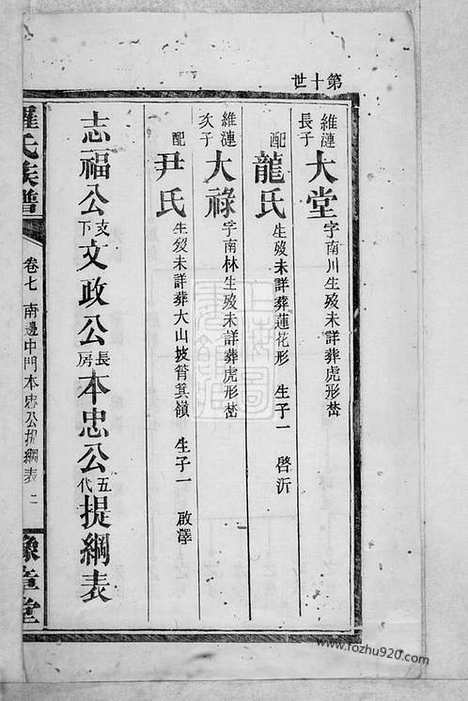 第十世
維漣長子 大堂 字南川生歿未詳葬虎形嵆
配 龍氏 生歿未詳葬蓮花形 生子一 啓沂
維漣次子 大祿 字南林生歿未詳葬虎形嵆
配 尹氏 生歿未詳葬大山坡筲箕嶺 生子一 啟澤
志福公支下文政公長房本忠公五代提綱表
羅氏族譜 卷七 南邊中門本忠公提綱表 二 豫章堂
www.fozhu920.com